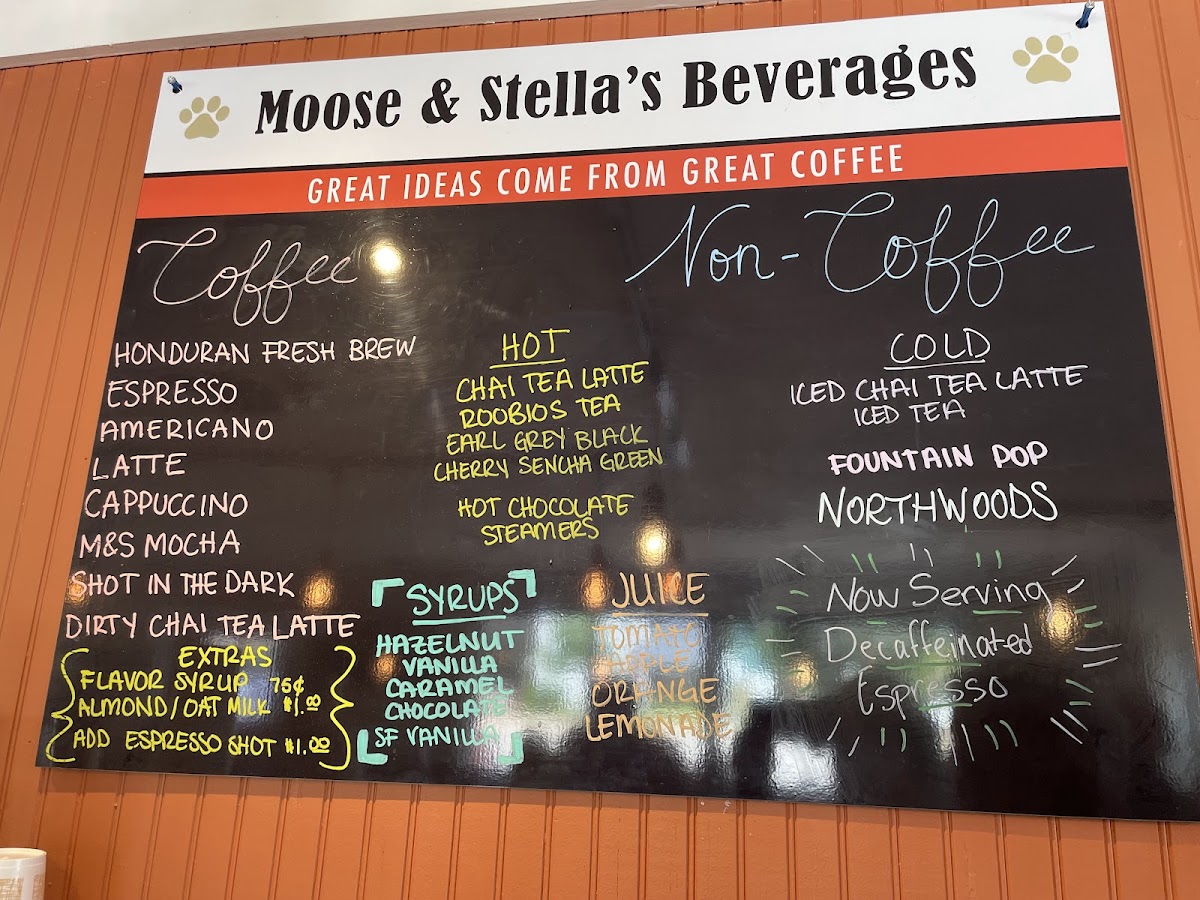 Moose & Stella's Beverages
GREAT IDEAS COME FROM GREAT COFFEE
Coffee
HONDURAN FRESH BREW
ESPRESSO
AMERICANO
LATTE
CAPPUCCINO
M&S MOCHA
SHOT IN THE DARK
DIRTY CHAI TEA LATTE
EXTRAS
FLAVOR SYRUP 75¢
ALMOND/OAT MILK $1.00
ADD ESPRESSO SHOT $1.00
Non-Coffee
HOT
CHAI TEA LATTE
ROOBIOS TEA
EARL GREY BLACK
CHERRY SENCHA GREEN
HOT CHOCOLATE
STEAMERS
SYRUPS
HAZELNUT
VANILLA
CARAMEL
CHOCOLATE
SF VANILLA
JUICE
TOMATO
APPLE
ORANGE
LEMONADE
COLD
ICED CHAI TEA LATTE
ICED TEA
FOUNTAIN POP
NORTHWOODS
Now Serving
Decaffeinated
Espresso